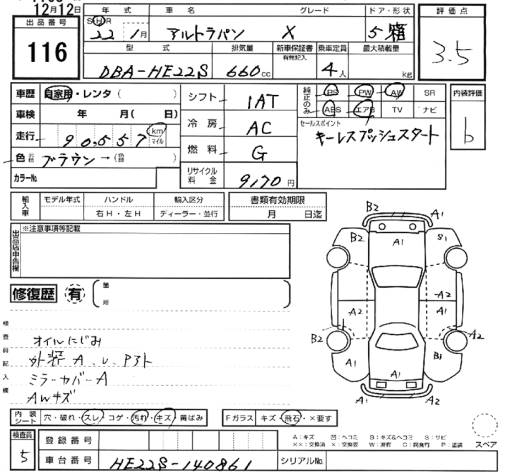 12月12日
出品番号 116
年式 22年 1月
車名 アルトラパン
グレード X
ドア・形状 5 箱
評価点 3.5
型式 DBA-HE22S
排気量 660cc
新車保証書 有無記入
乗車定員 4人
最大積載量 kg
車歴 自家用・レンタ( )
車検 年 月(日)
走行 90,557 km マイル
色 ブラウン→( )
カラーNo.
シフト IAT
冷房 AC
燃料 G
リサイクル料金 9,170円
純正のみ PS PW AW SR
ABS エアB TV ナビ
セールスポイント
キーレスプッシュスタート
内装評価 b
輸入車 モデル年式 ハンドル 右H・左H 輸入区分 ディーラー・並行
書類有効期限 月 日迄
出品店申告欄 ※注意事項等記載
修復歴 有 箇所
検査員記入欄
オイルにじみ
外装 A、U、Pアト
ミラーカバーA
AWキズ
B2 A1
B2 A1 S1
A1
A2 A1 A2
A2 A1 B1
A1
A1
内装シート 穴・破れ・スレ・コゲ・汚れ・キズ 菌ばみ
Fガラス キズ・飛石・×要す
スペア
検査員 5
登録番号
車台番号 HE22S-140861
シリアルNo.
A:キズ 凹:ヘコミ B:キズ&ヘコミ S:サビ
××:交換済 ×:要交換 W:補修 C:腐食 P:塗装